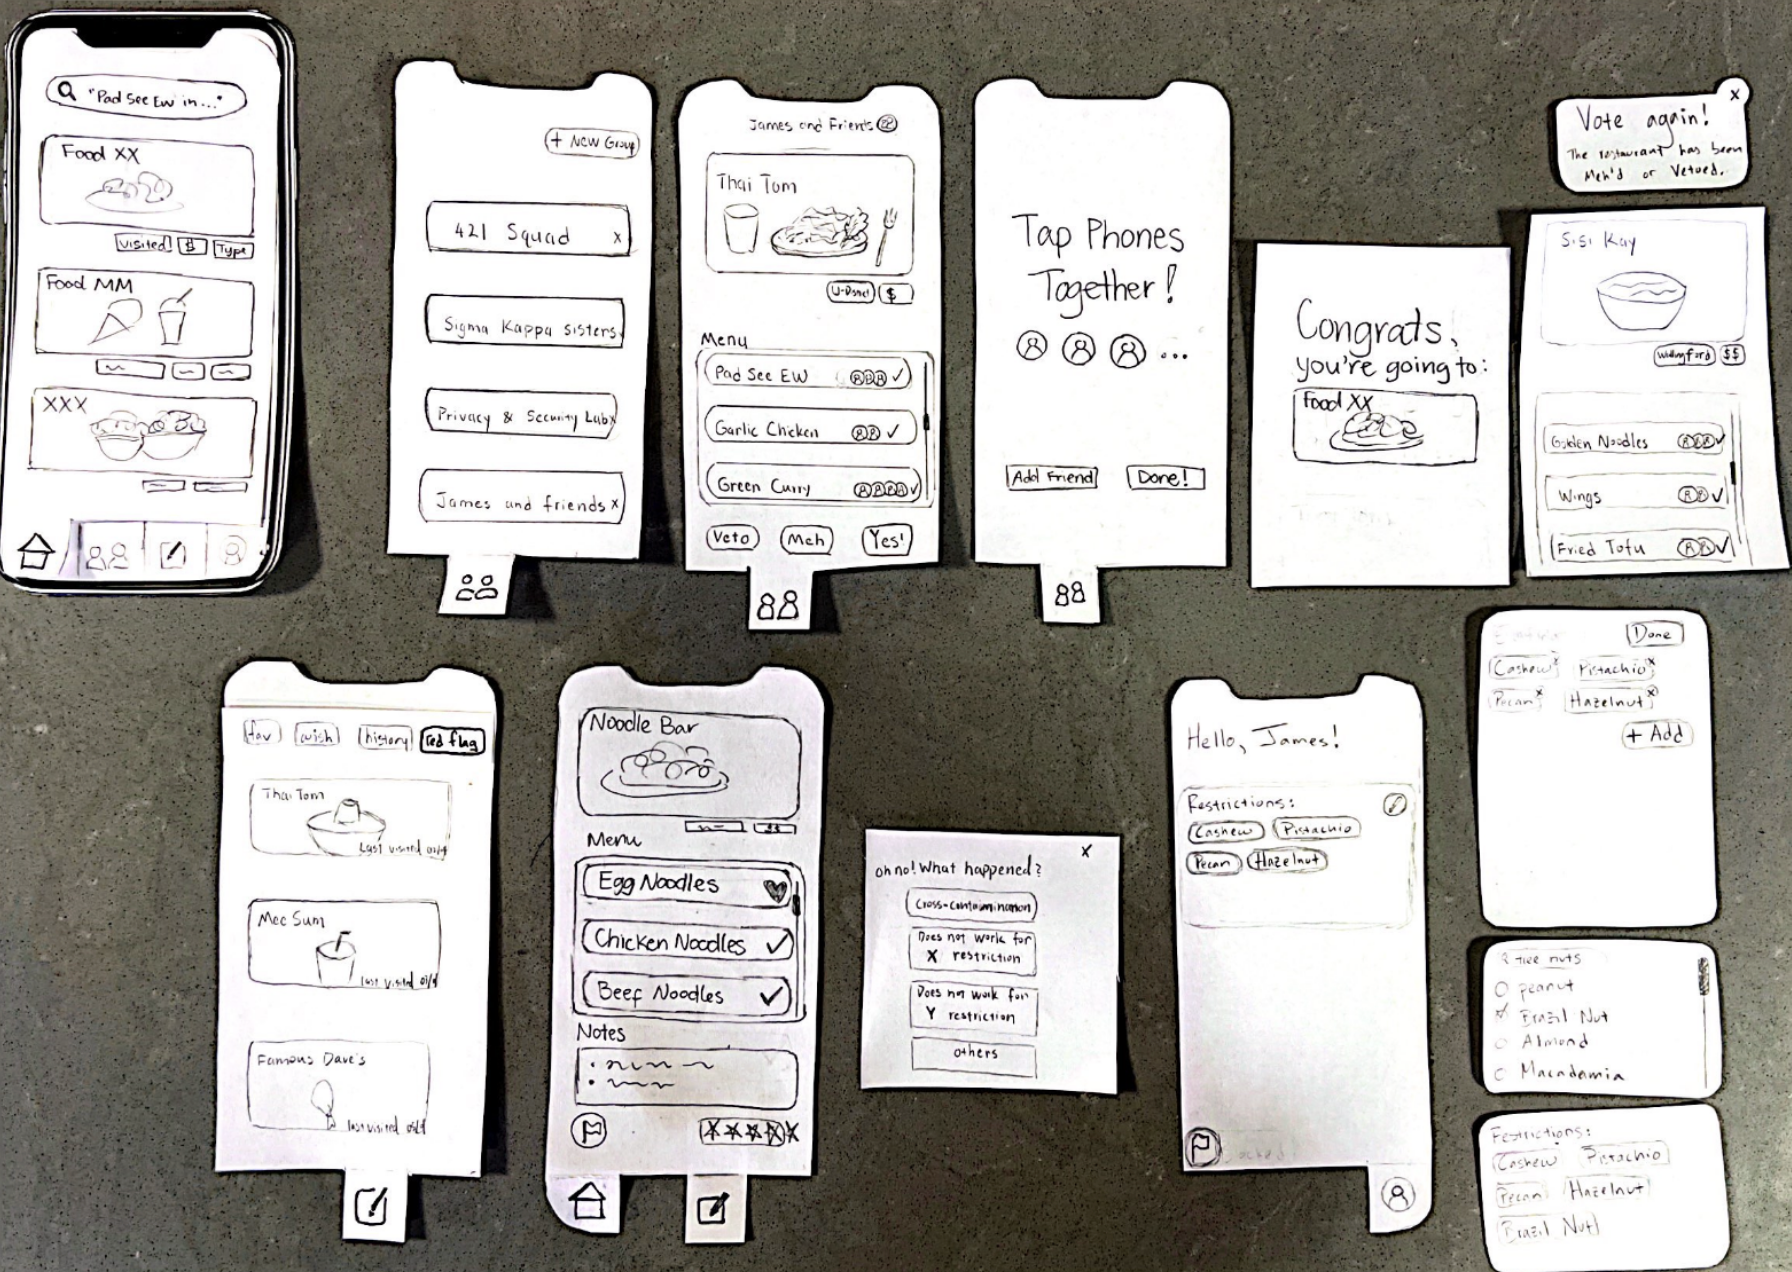 "Pad See Ew in..."
Food XX
Visited! $ Type
Food MM
XXX
+ New Group
421 Squad x
Sigma Kappa sisters
Privacy & Security Lab x
James and friends x
James and Friends
Thai Tom
U-District $
Menu
Pad See EW
Garlic Chicken
Green Curry
Veto Meh Yes!
Tap Phones
Together!
...
Add Friend Done!
Congrats,
you're going to:
Food XX
x
Vote again!
The restaurant has been
Meh'd or Vetoed.
Sisi Kay
Wallingford $$
Golden Noodles
Wings
Fried Tofu
fav wish history red flag
Thai Tom
Last visited
Mee Sum
last visited
Famous Dave's
last visited
Noodle Bar
$$
Menu
Egg Noodles
Chicken Noodles
Beef Noodles
Notes
x
oh no! What happened?
Cross-contamination
Does not work for
X restriction
Does not work for
Y restriction
others
Hello, James!
Restrictions:
Cashew Pistachio
Pecan Hazelnut
Done
Cashew x Pistachio x
Pecan x Hazelnut x
+ Add
tree nuts
peanut
Brazil Nut
Almond
Macadamia
Restrictions:
Cashew Pistachio
Pecan Hazelnut
Brazil Nut